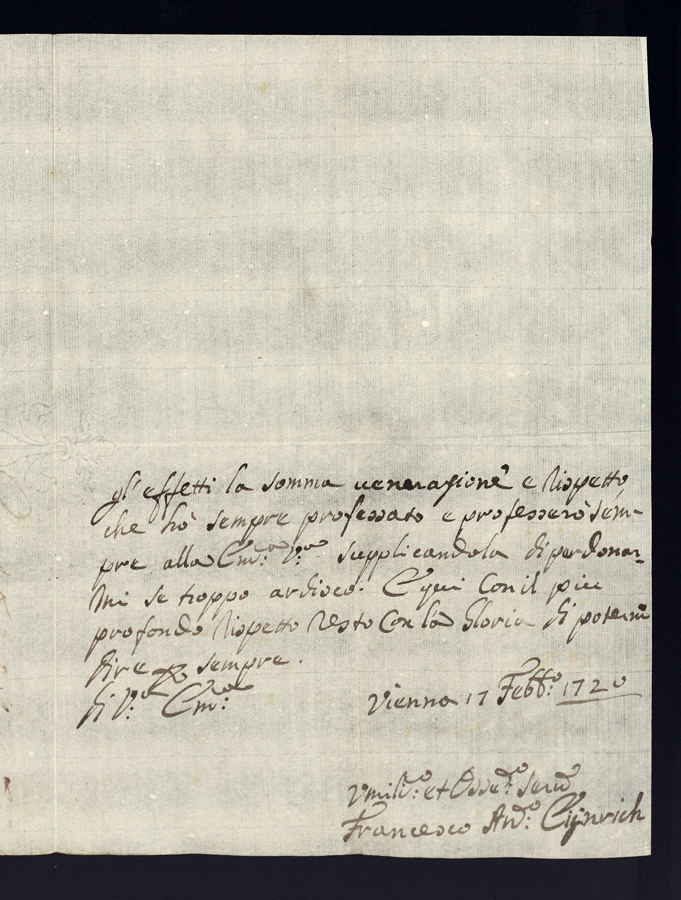 gl'effetti la somma veneratione e rispetto,
che hò sempre professato e professerò sem-
pre alla Em:za V:ra supplicandola di perdonar-
mi se troppo ardisco. E qui con il piu
profondo rispetto resto con la gloria di potermi
dire per sempre.
di V:ra Em:za
Vienna 17 Febb:o 1720
Vmil:o et Osse:mo seruo
Francesco Ant:o